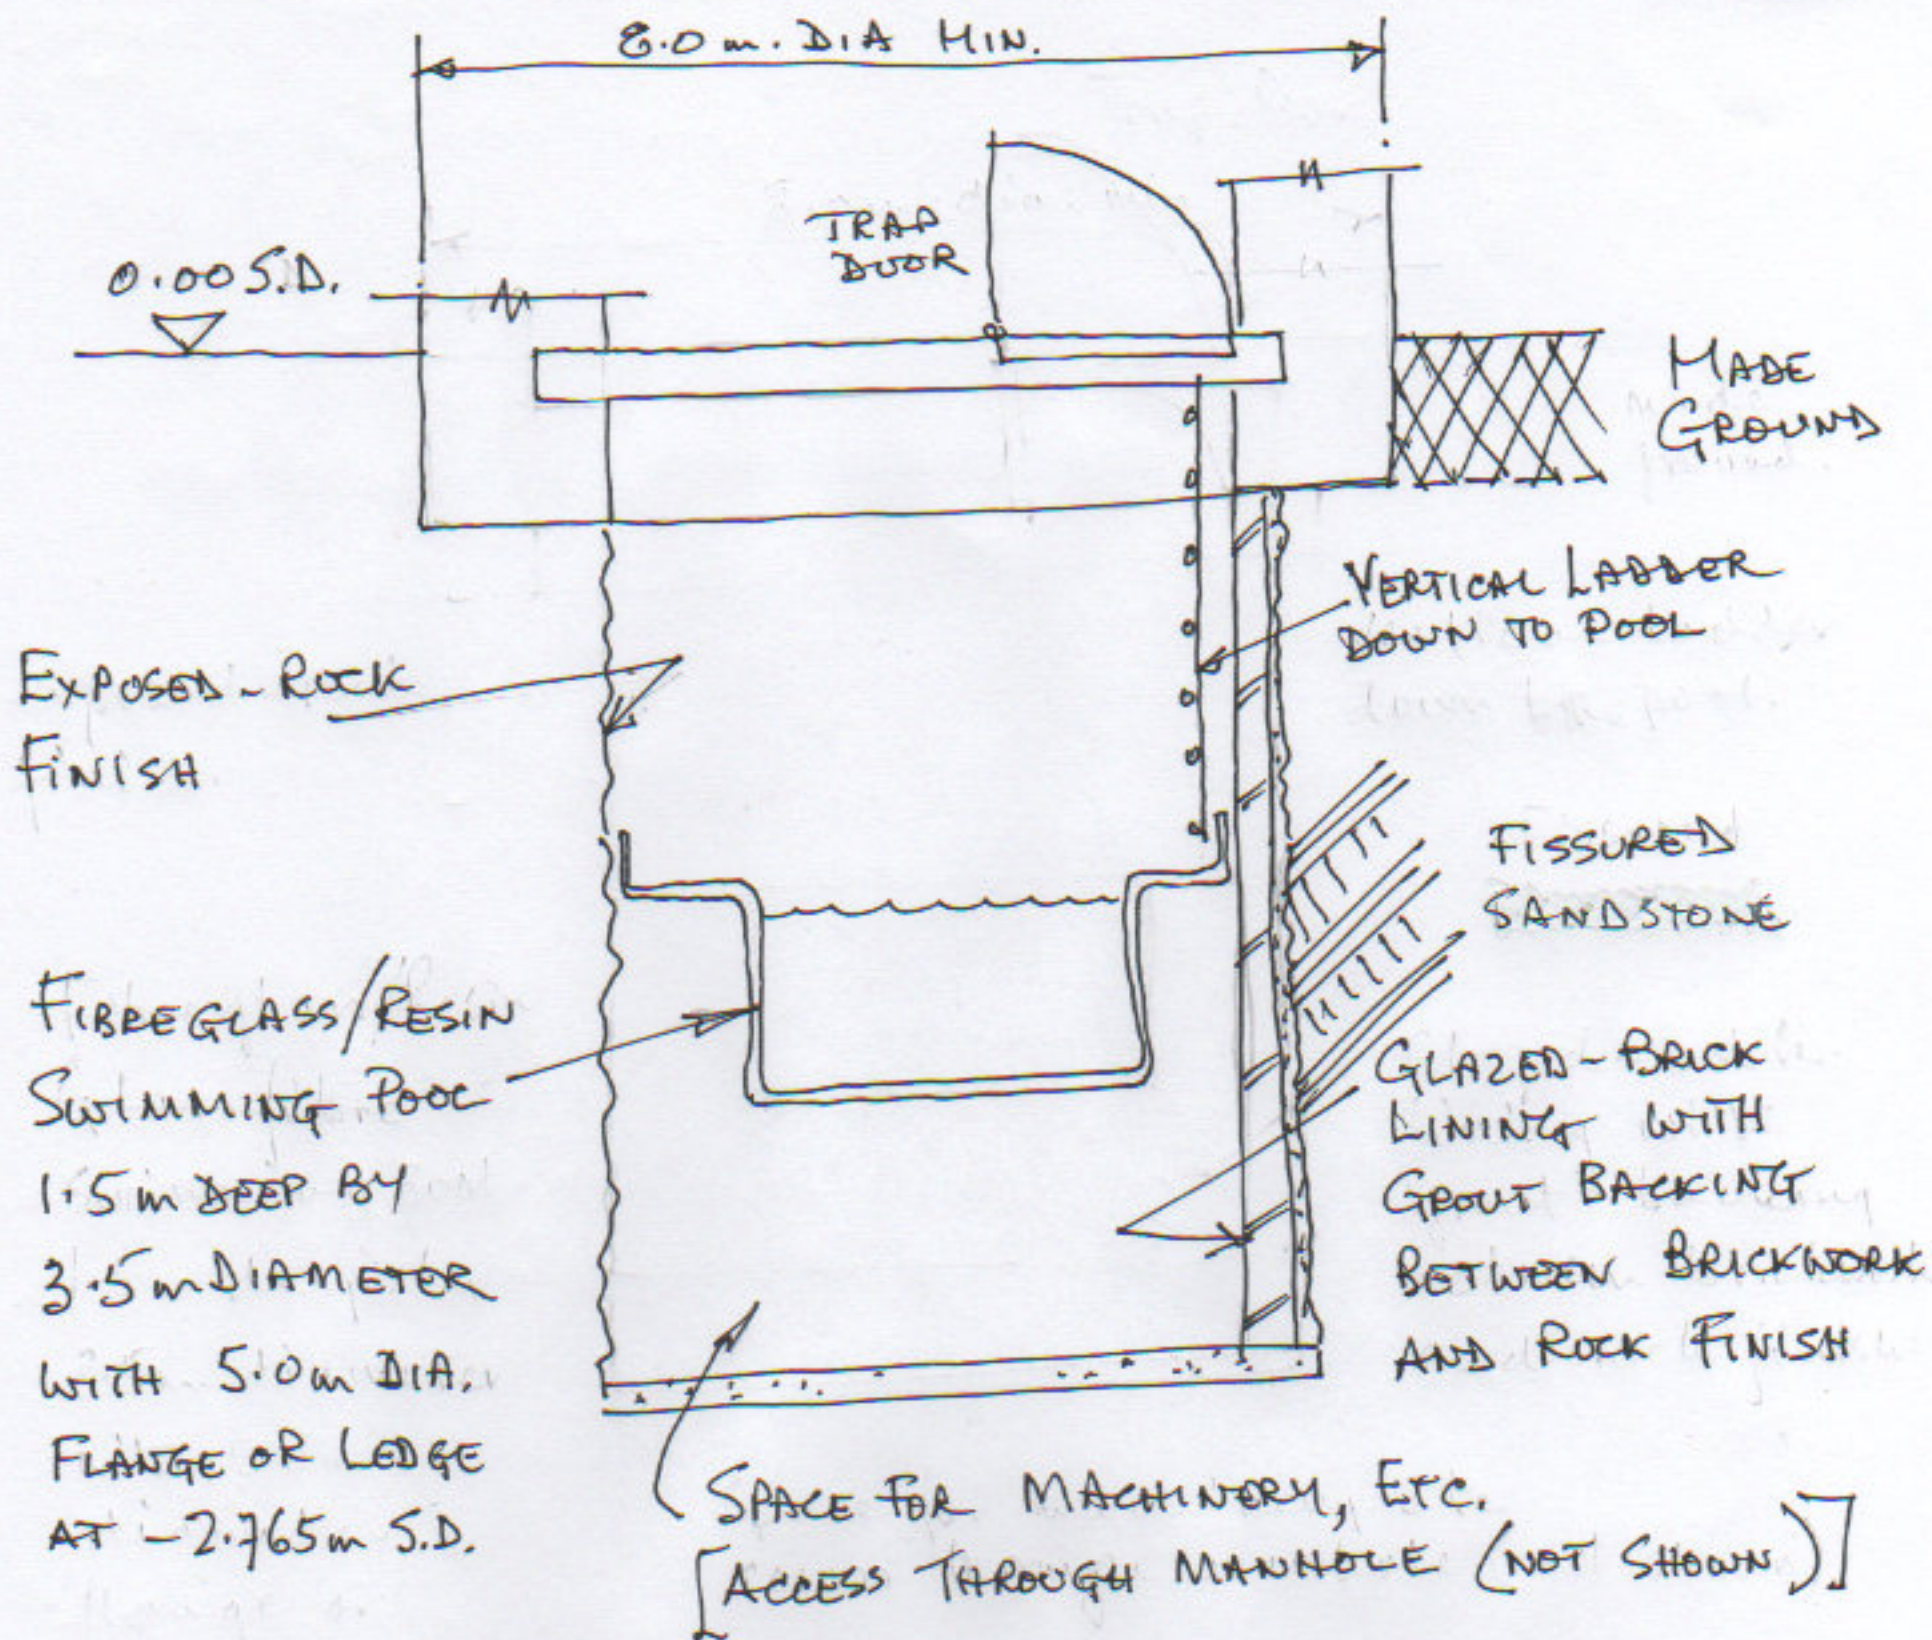 8.0 m. DIA MIN.
TRAP
DOOR
0.00 S.D.
MADE
GROUND
VERTICAL LADDER
DOWN TO POOL
EXPOSED-ROCK
FINISH
FISSURED
SANDSTONE
FIBREGLASS/RESIN
SWIMMING POOL
1.5m DEEP BY
3.5m DIAMETER
WITH 5.0m DIA.
FLANGE OR LEDGE
AT -2.765m S.D.
GLAZED-BRICK
LINING WITH
GROUT BACKING
BETWEEN BRICKWORK
AND ROCK FINISH
SPACE FOR MACHINERY, ETC.
[ACCESS THROUGH MANHOLE (NOT SHOWN)]